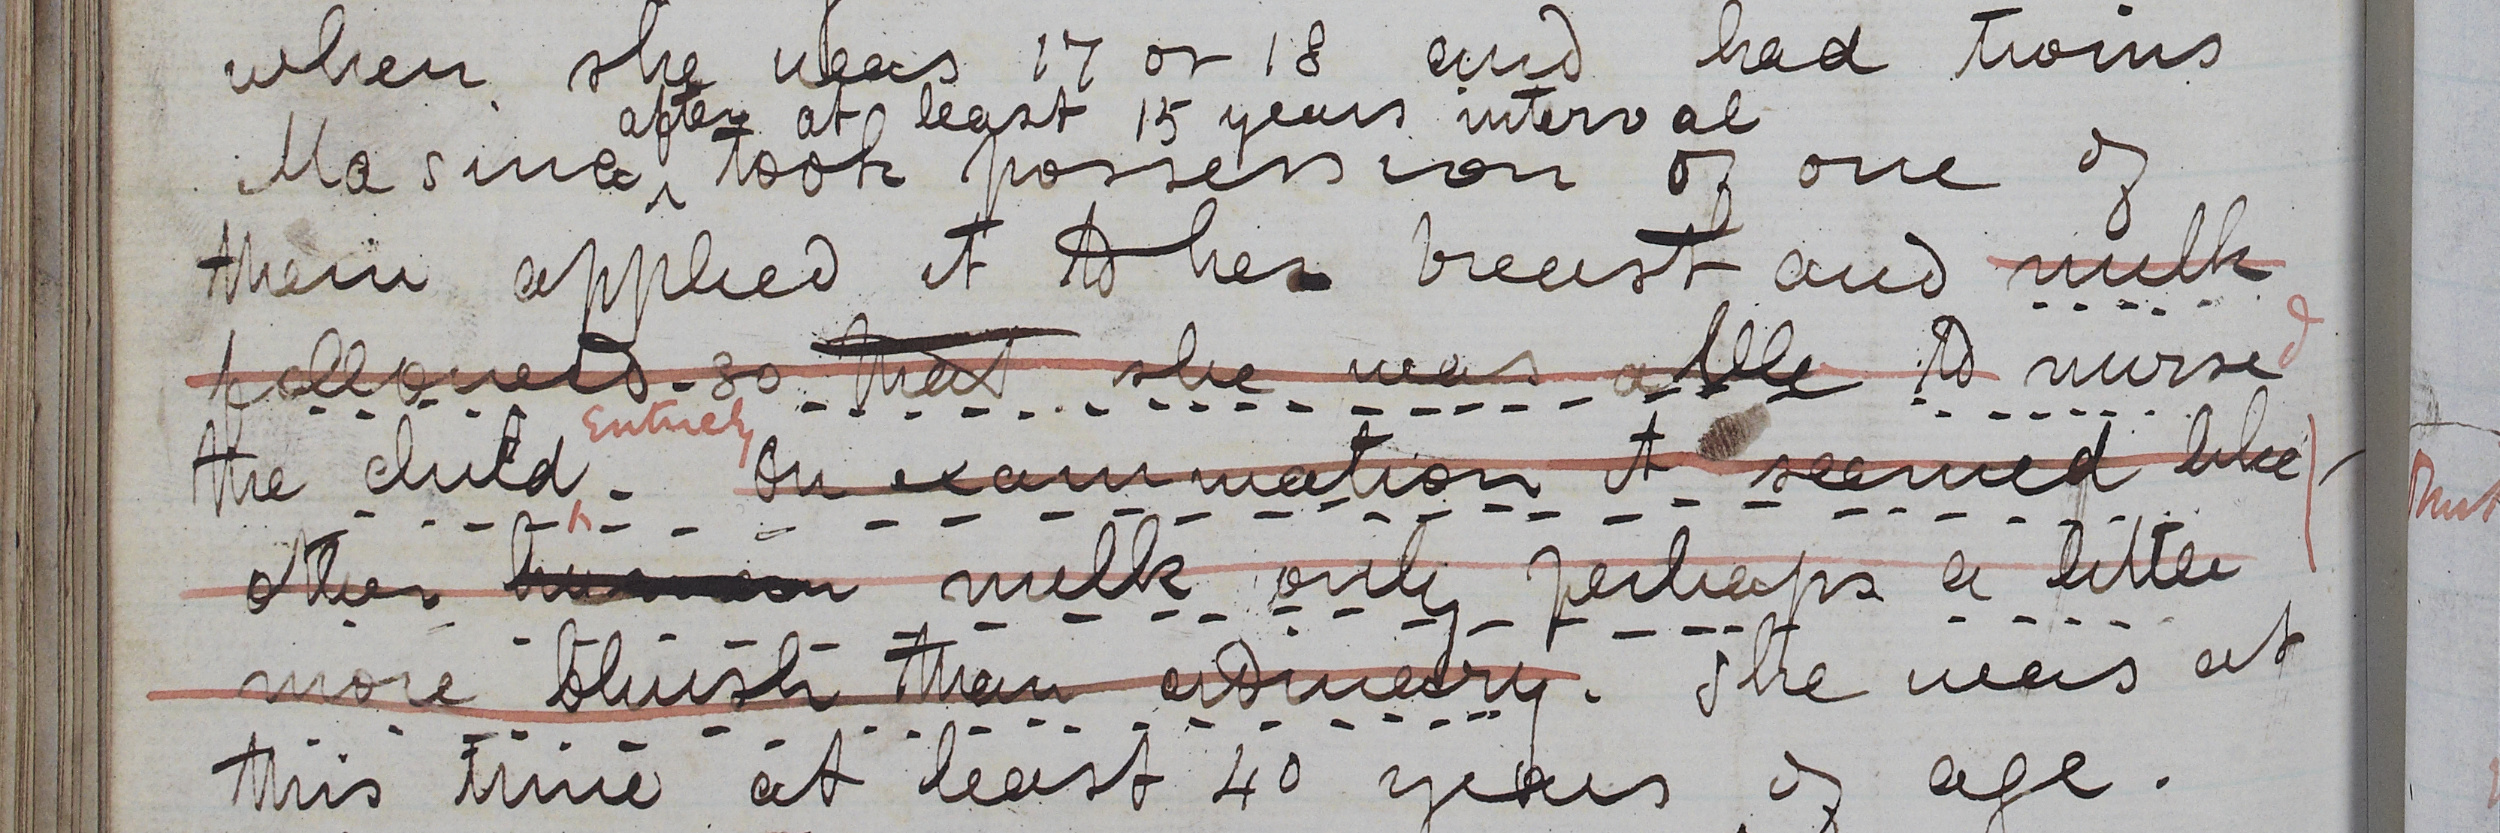 when she was 17 or 18 and had twins
after at least 15 years interval
Masina took possession of one of
them applied it to her breast and milk
followed so that she was able to nursed
the child. Entirely On examination it seemed like
other human milk only perhaps a little
more bluish than ordinary. She was at
this time at least 40 years of age.